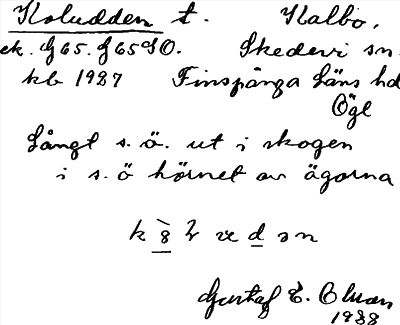 Koludden t. Kalbo,
ek. G65. G65SO. Skedevi sn.
kb 1927 Finspånga läns hd
Ögl
Långt s. ö. ut i skogen
i s. ö hörnet av ägorna
Gustaf E.